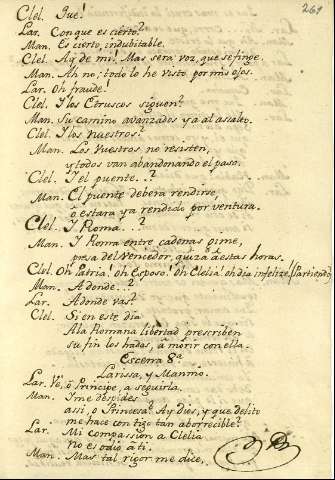 269
Clel. Que!
Lar. Con que es cierto?
Man. Es cierto, indubitable.
Clel. Ay de mi! Mas sera voz, que se finge.
Man. Ah no; todo lo he visto por mis ojos.
Lar. Oh fraude!
Clel. Y los Etruscos siguen?
Man. Su camino avanzados ya al assalto.
Clel. Y los nuestros?
Man. Los Nuestros no resisten,
y todos van abandonando el paso.
Clel. Y el puente...?
Man. El puente debera rendirse,
o estara ya rendido por ventura.
Clel. Y Roma...?
Man. Y Roma entre cadenas gime,
presa del Vencedor, quiza à estas horas.
Clel. Oh Patria! oh Esposo! Oh Clelia! oh dia infelize! (Partiendo)
Man. Adonde...?
Lar. Adonde vas?
Clel. Si en este dia
A la Romana libertad prescriben
su fin los hados, à morir con ella.
Escena 8ª
Larissa, y Manmio.
Lar. Vé, o Principe, a seguirla.
Man. Y me despides
assi, o Princesa? Ay dios, y que delito
me hace contigo tan aborrecible?
Lar. Mi compassion a Clelia
no es odio à ti.
Man. Mas tal rigor me dice,